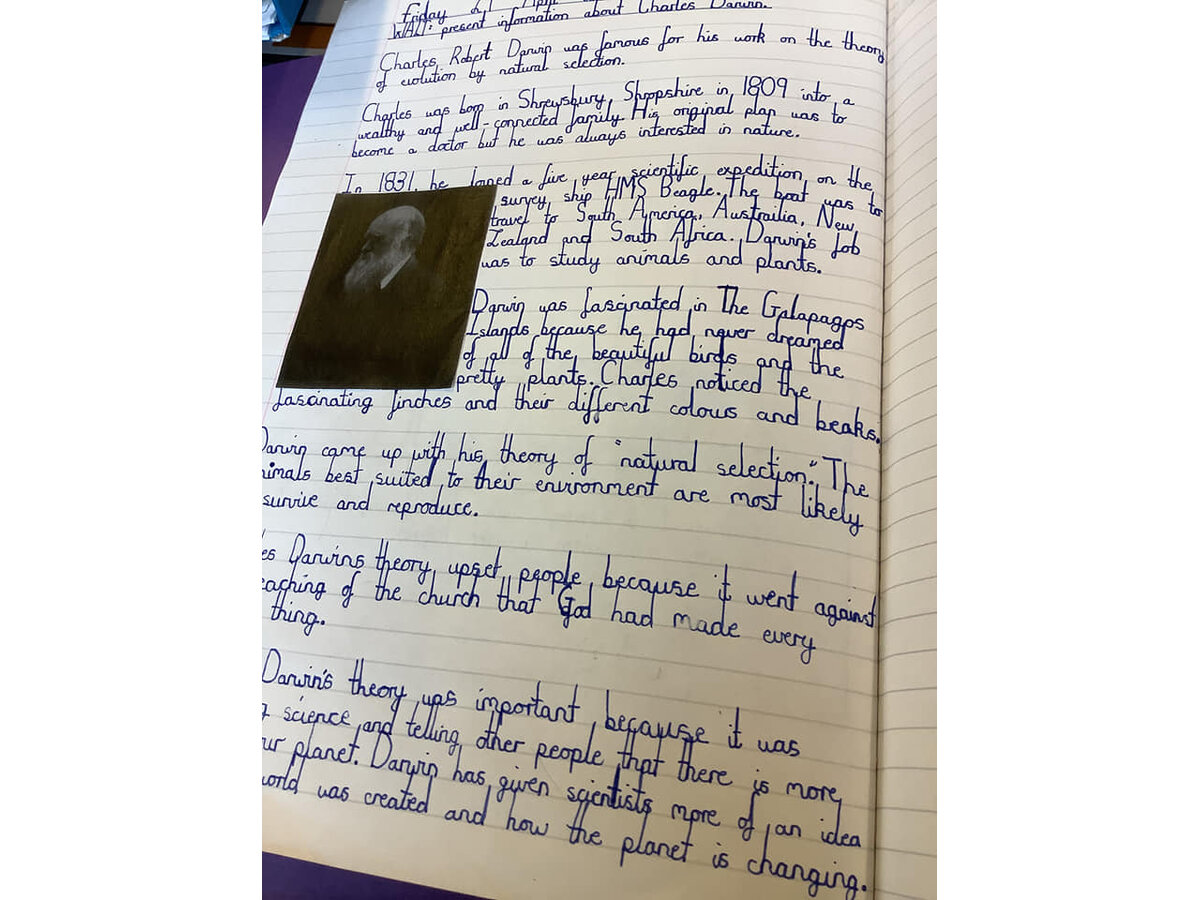 Friday 21 April
WALT: present information about Charles Darwin.
Charles Robert Darwin was famous for his work on the theory
of evolution by natural selection.
Charles was born in Shrewsbury, Shropshire in 1809 into a
wealthy and well-connected family. His original plan was to
become a doctor but he was always interested in nature.
In 1831, he joined a five year scientific expedition on the
survey ship HMS Beagle. The boat was to
travel to South America, Austrailia, New
Zealand and South Africa. Darwin's job
was to study animals and plants.
Darwin was fascinated in The Galapagos
Islands because he had never dreamed
of all of the beautiful birds and the
pretty plants. Charles noticed the
fascinating finches and their different colours and beaks.
Darwin came up with his theory of "natural selection." The
nimals best suited to their environment are most likely
survive and reproduce.
es Darwins theory upset people because it went against
eaching of the church that God had made every
thing.
Darwin's theory was important because it was
science and telling other people that there is more
ur planet. Darwin has given scientists more of an idea
orld was created and how the planet is changing.